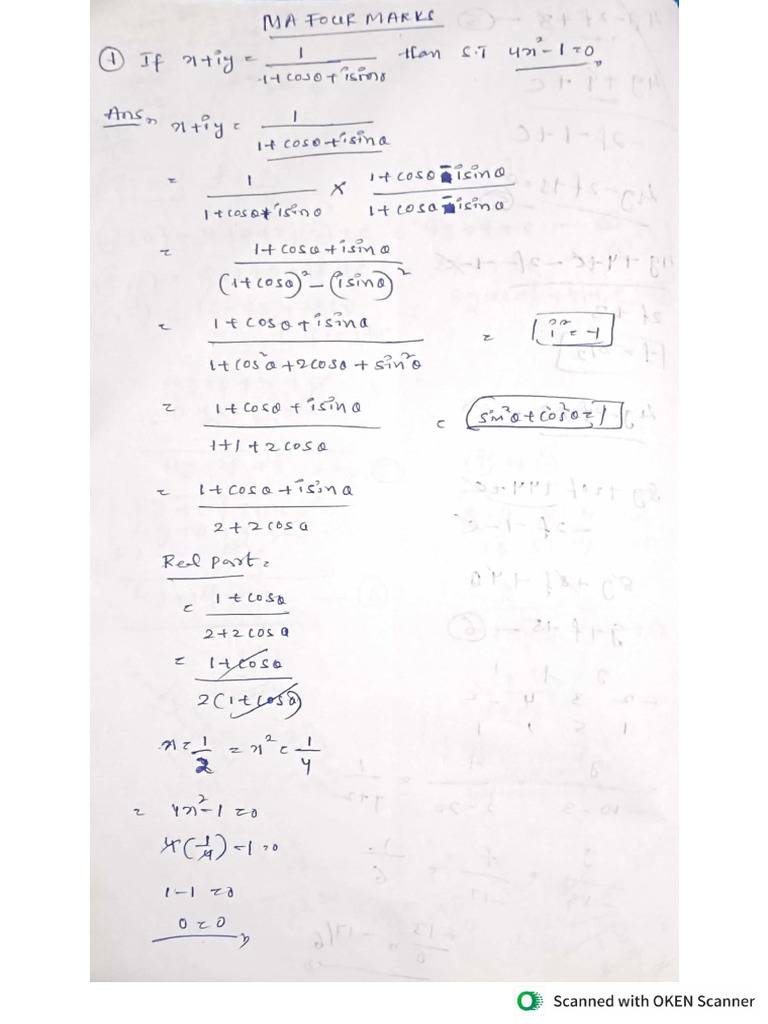 MA FOUR MARKS
① If x+iy = 1 / 1+cosθ+isinθ then S.T 4x²-1=0
Ans x+iy = 1 / 1+cosθ+isinθ
= 1 / 1+cosθ+isinθ × 1+cosθ-isinθ / 1+cosθ-isinθ
= 1+cosθ+isinθ / (1+cosθ)²-(isinθ)²
= 1+cosθ+isinθ / 1+cos²θ+2cosθ+sin²θ = i²=-1
= 1+cosθ+isinθ / 1+1+2cosθ = sin²θ+cos²θ=1
= 1+cosθ+isinθ / 2+2cosθ
Real part=
= 1+cosθ / 2+2cosθ
= 1+cosθ / 2(1+cosθ)
x=1/2 = x²=1/4
= 4x²-1=0
4(1/4)-1=0
1-1=0
0=0
Scanned with OKEN Scanner